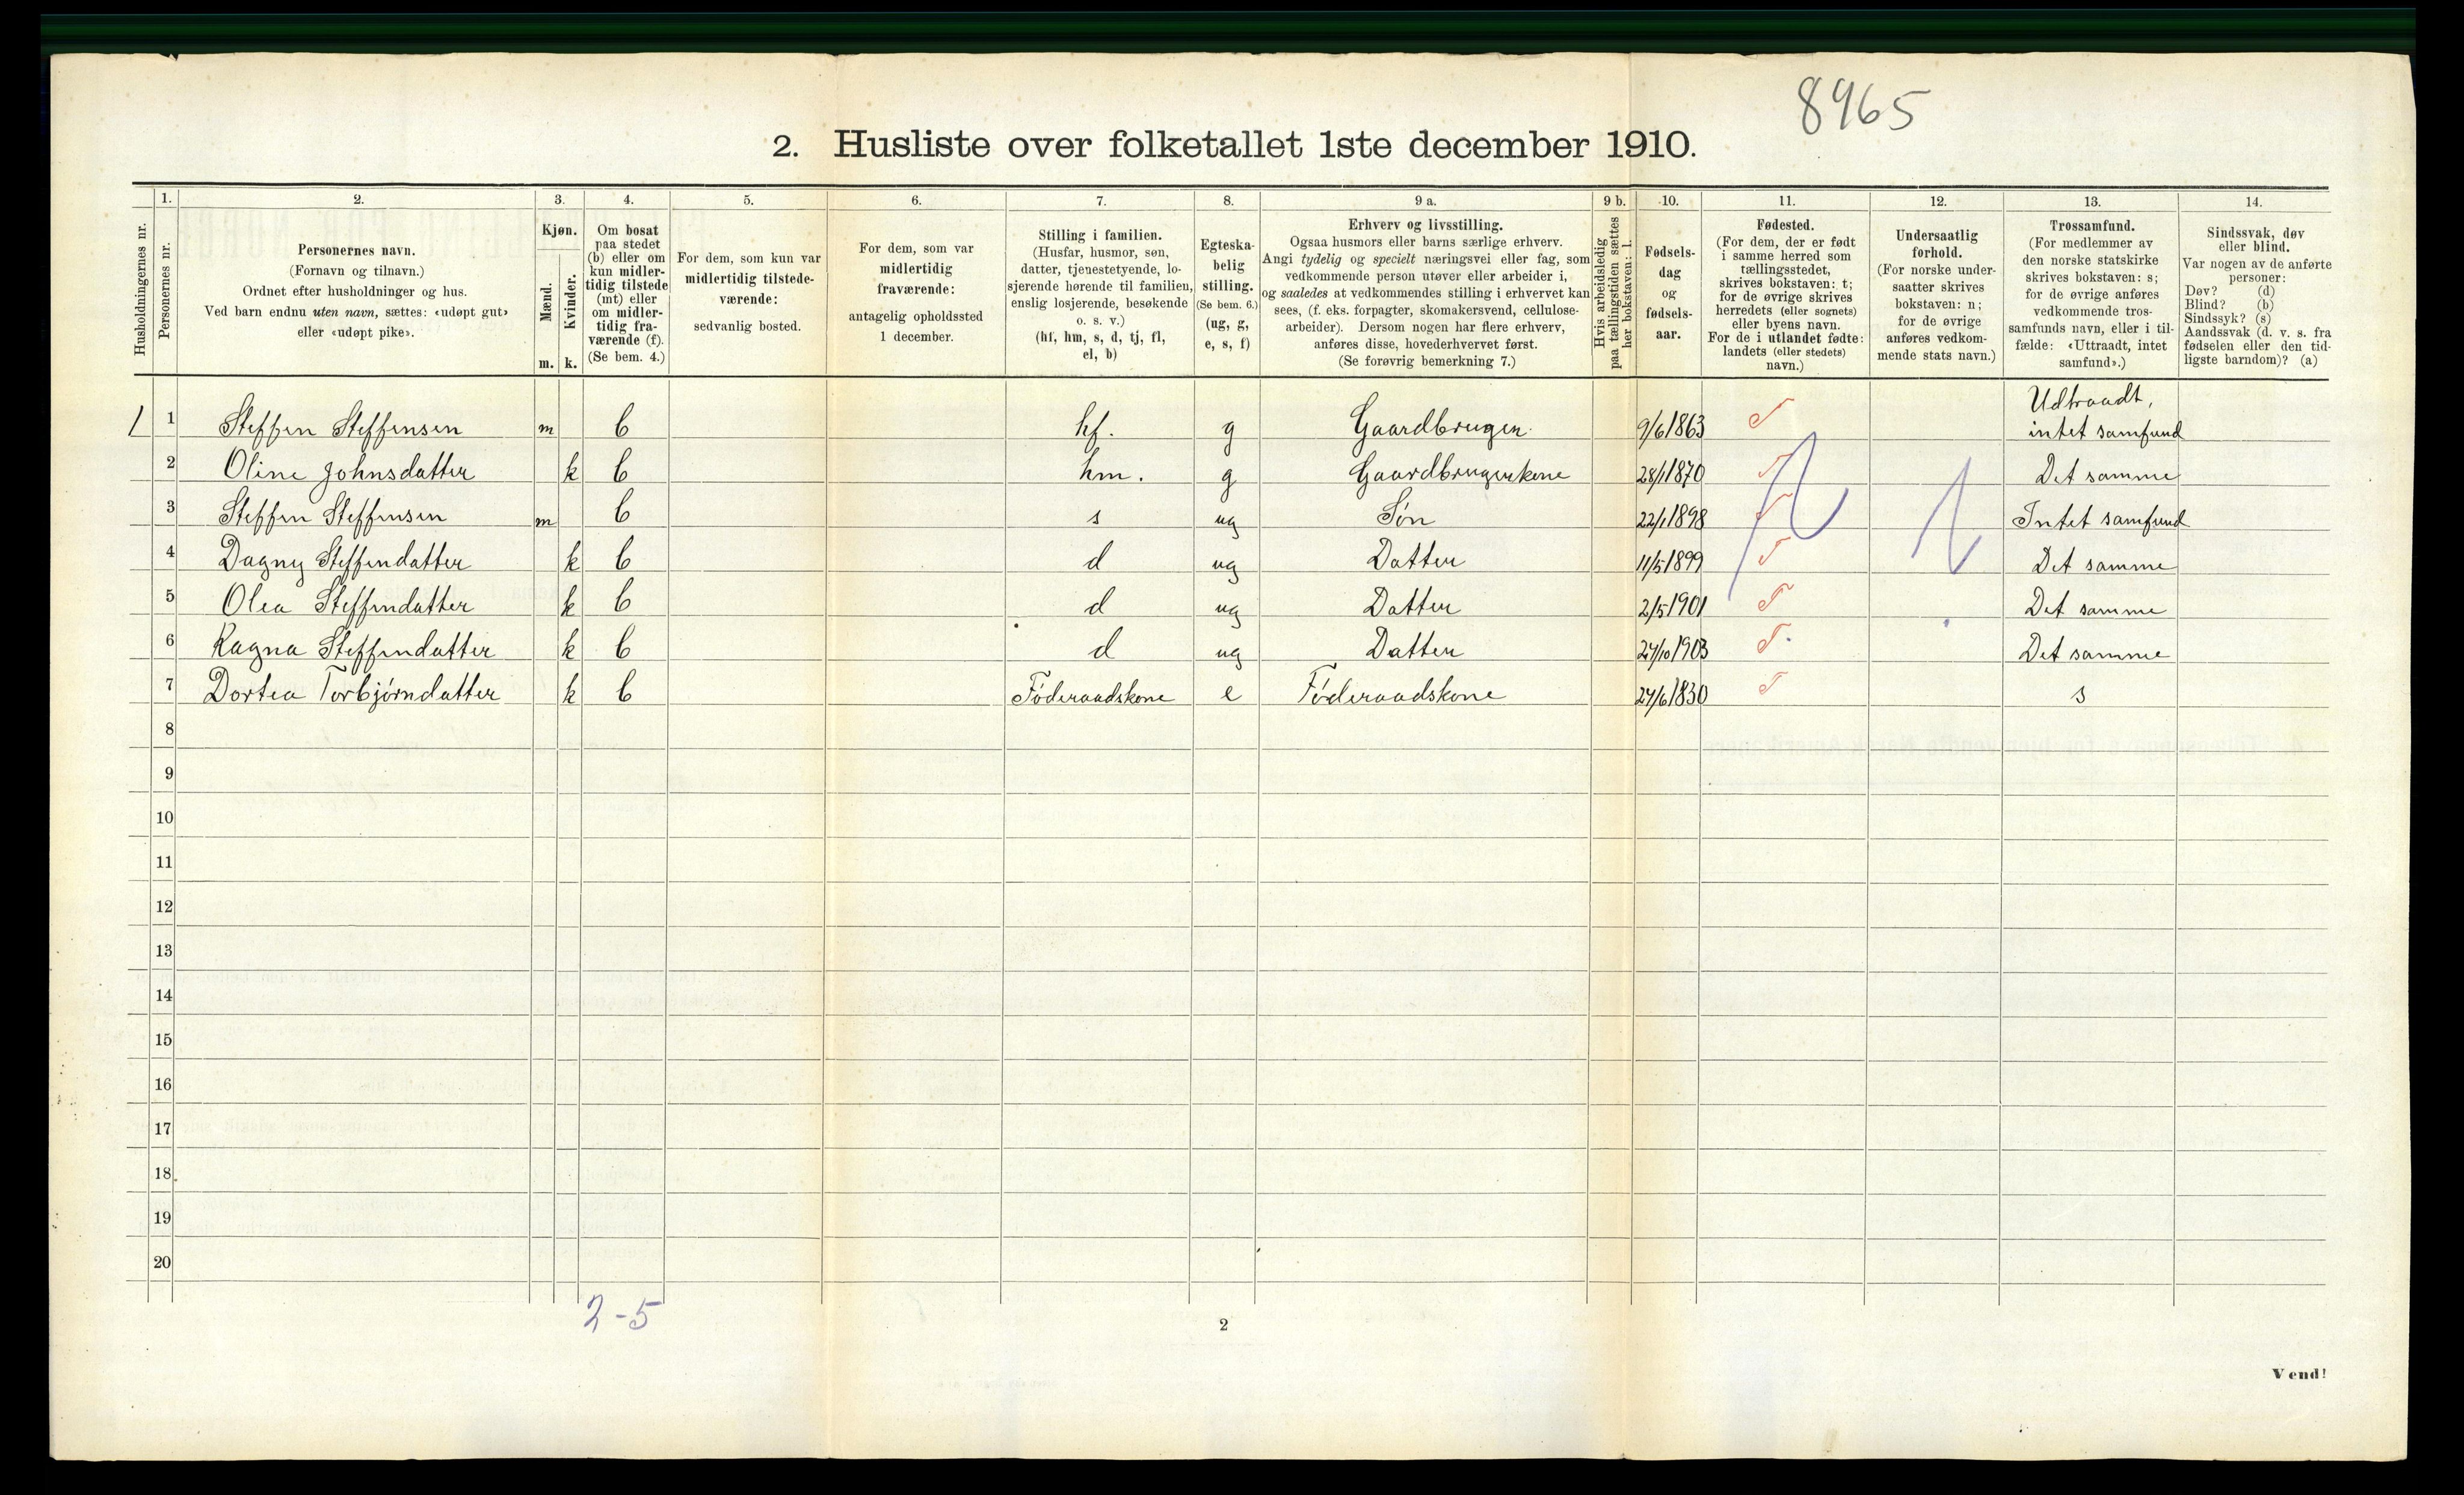 8965
2. Husliste over folketallet 1ste december 1910.
Husholdningernes nr.
1.
Personernes nr.
2.
Personernes navn.
(Fornavn og tilnavn.)
Ordnet efter husholdninger og hus.
Ved barn endnu uten navn, sættes: «udøpt gut»
eller «udøpt pike».
3.
Kjøn.
Mænd.
Kvinder.
m. k.
4.
Om bosat
paa stedet
(b) eller om
kun midler-
tidig tilstede
(mt) eller
om midler-
tidig fra-
værende (f).
(Se bem. 4.)
5.
For dem, som kun var
midlertidig tilstede-
værende:
sedvanlig bosted.
6.
For dem, som var
midlertidig
fraværende:
antagelig opholdssted
1 december.
7.
Stilling i familien.
(Husfar, husmor, søn,
datter, tjenestetyende, lo-
sjerende hørende til familien,
enslig losjerende, besøkende
o. s. v.)
(hf, hm, s, d, tj, fl,
el, b)
8.
Egteska-
belig
stilling.
(Se bem. 6.)
(ug, g,
e, s, f)
9 a.
Erhverv og livsstilling.
Ogsaa husmors eller barns særlige erhverv.
Angi tydelig og specielt næringsvei eller fag, som
vedkommende person utøver eller arbeider i,
og saaledes at vedkommendes stilling i erhvervet kan
sees, (f. eks. forpagter, skomakersvend, cellulose-
arbeider). Dersom nogen har flere erhverv,
anføres disse, hovederhvervet først.
(Se forøvrig bemerkning 7.)
9 b.
Hvis arbeidsledig
paa tællingstiden sættes
her bokstaven: l.
10.
Fødsels-
dag
og
fødsels-
aar.
11.
Fødested.
(For dem, der er født
i samme herred som
tællingsstedet,
skrives bokstaven: t;
for de øvrige skrives
herredets (eller sognets)
eller byens navn.
For de i utlandet fødte:
landets (eller stedets)
navn.)
12.
Undersaatlig
forhold.
(For norske under-
saatter skrives
bokstaven: n;
for de øvrige
anføres vedkom-
mende stats navn.)
13.
Trossamfund.
(For medlemmer av
den norske statskirke
skrives bokstaven: s;
for de øvrige anføres
vedkommende tros-
samfunds navn, eller i til-
fælde: «Uttraadt, intet
samfund».)
14.
Sindssvak, døv
eller blind.
Var nogen av de anførte
personer:
Døv? (d)
Blind? (b)
Sindssyk? (s)
Aandssvak (d. v. s. fra
fødselen eller den tid-
ligste barndom)? (a)
1 1 Steffen Steffensen m b hf. g Gaardbruger 9/6 1863 T Udtraadt, intet samfund
2 Oline Johnsdatter k b hm. g Gaardbrugerkone 28/1 1870 T Det samme
3 Steffen Steffensen m b s ug Søn 22/1 1898 T Intet samfund
4 Dagny Steffendatter k b d ug Datter 11/5 1899 T Det samme
5 Olea Steffendatter k b d ug Datter 2/5 1901 T Det samme
6 Ragna Steffendatter k b d ug Datter 27/10 1903 T Det samme
7 Dortea Torbjørndatter k b Føderaadskone e Føderaadskone 27/6 1830 T s
8
9
10
11
12
13
14
15
16
17
18
19
20
2-5
2
Vend!